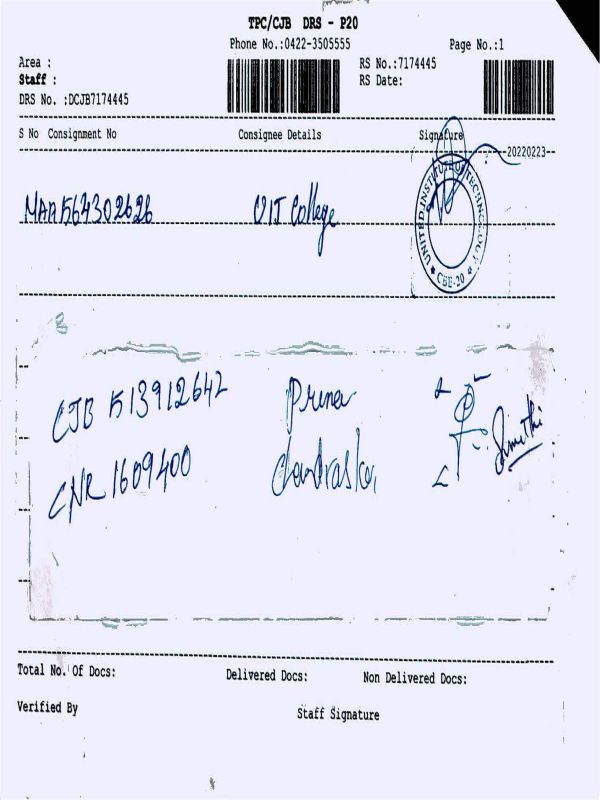 TPC/CJB DRS - P20
Phone No.:0422-3505555 Page No.:1
Area : RS No.:7174445
Staff : RS Date:
DRS No. :DCJB7174445
S No Consignment No Consignee Details Signature
20220223
MAA 564302626 UIT College
UNITED INSTITUTE OF TECHNOLOGY
CBE-20
CJB 513912642 Prema
CNR 1609400
Total No. Of Docs: Delivered Docs: Non Delivered Docs:
Verified By Staff Signature